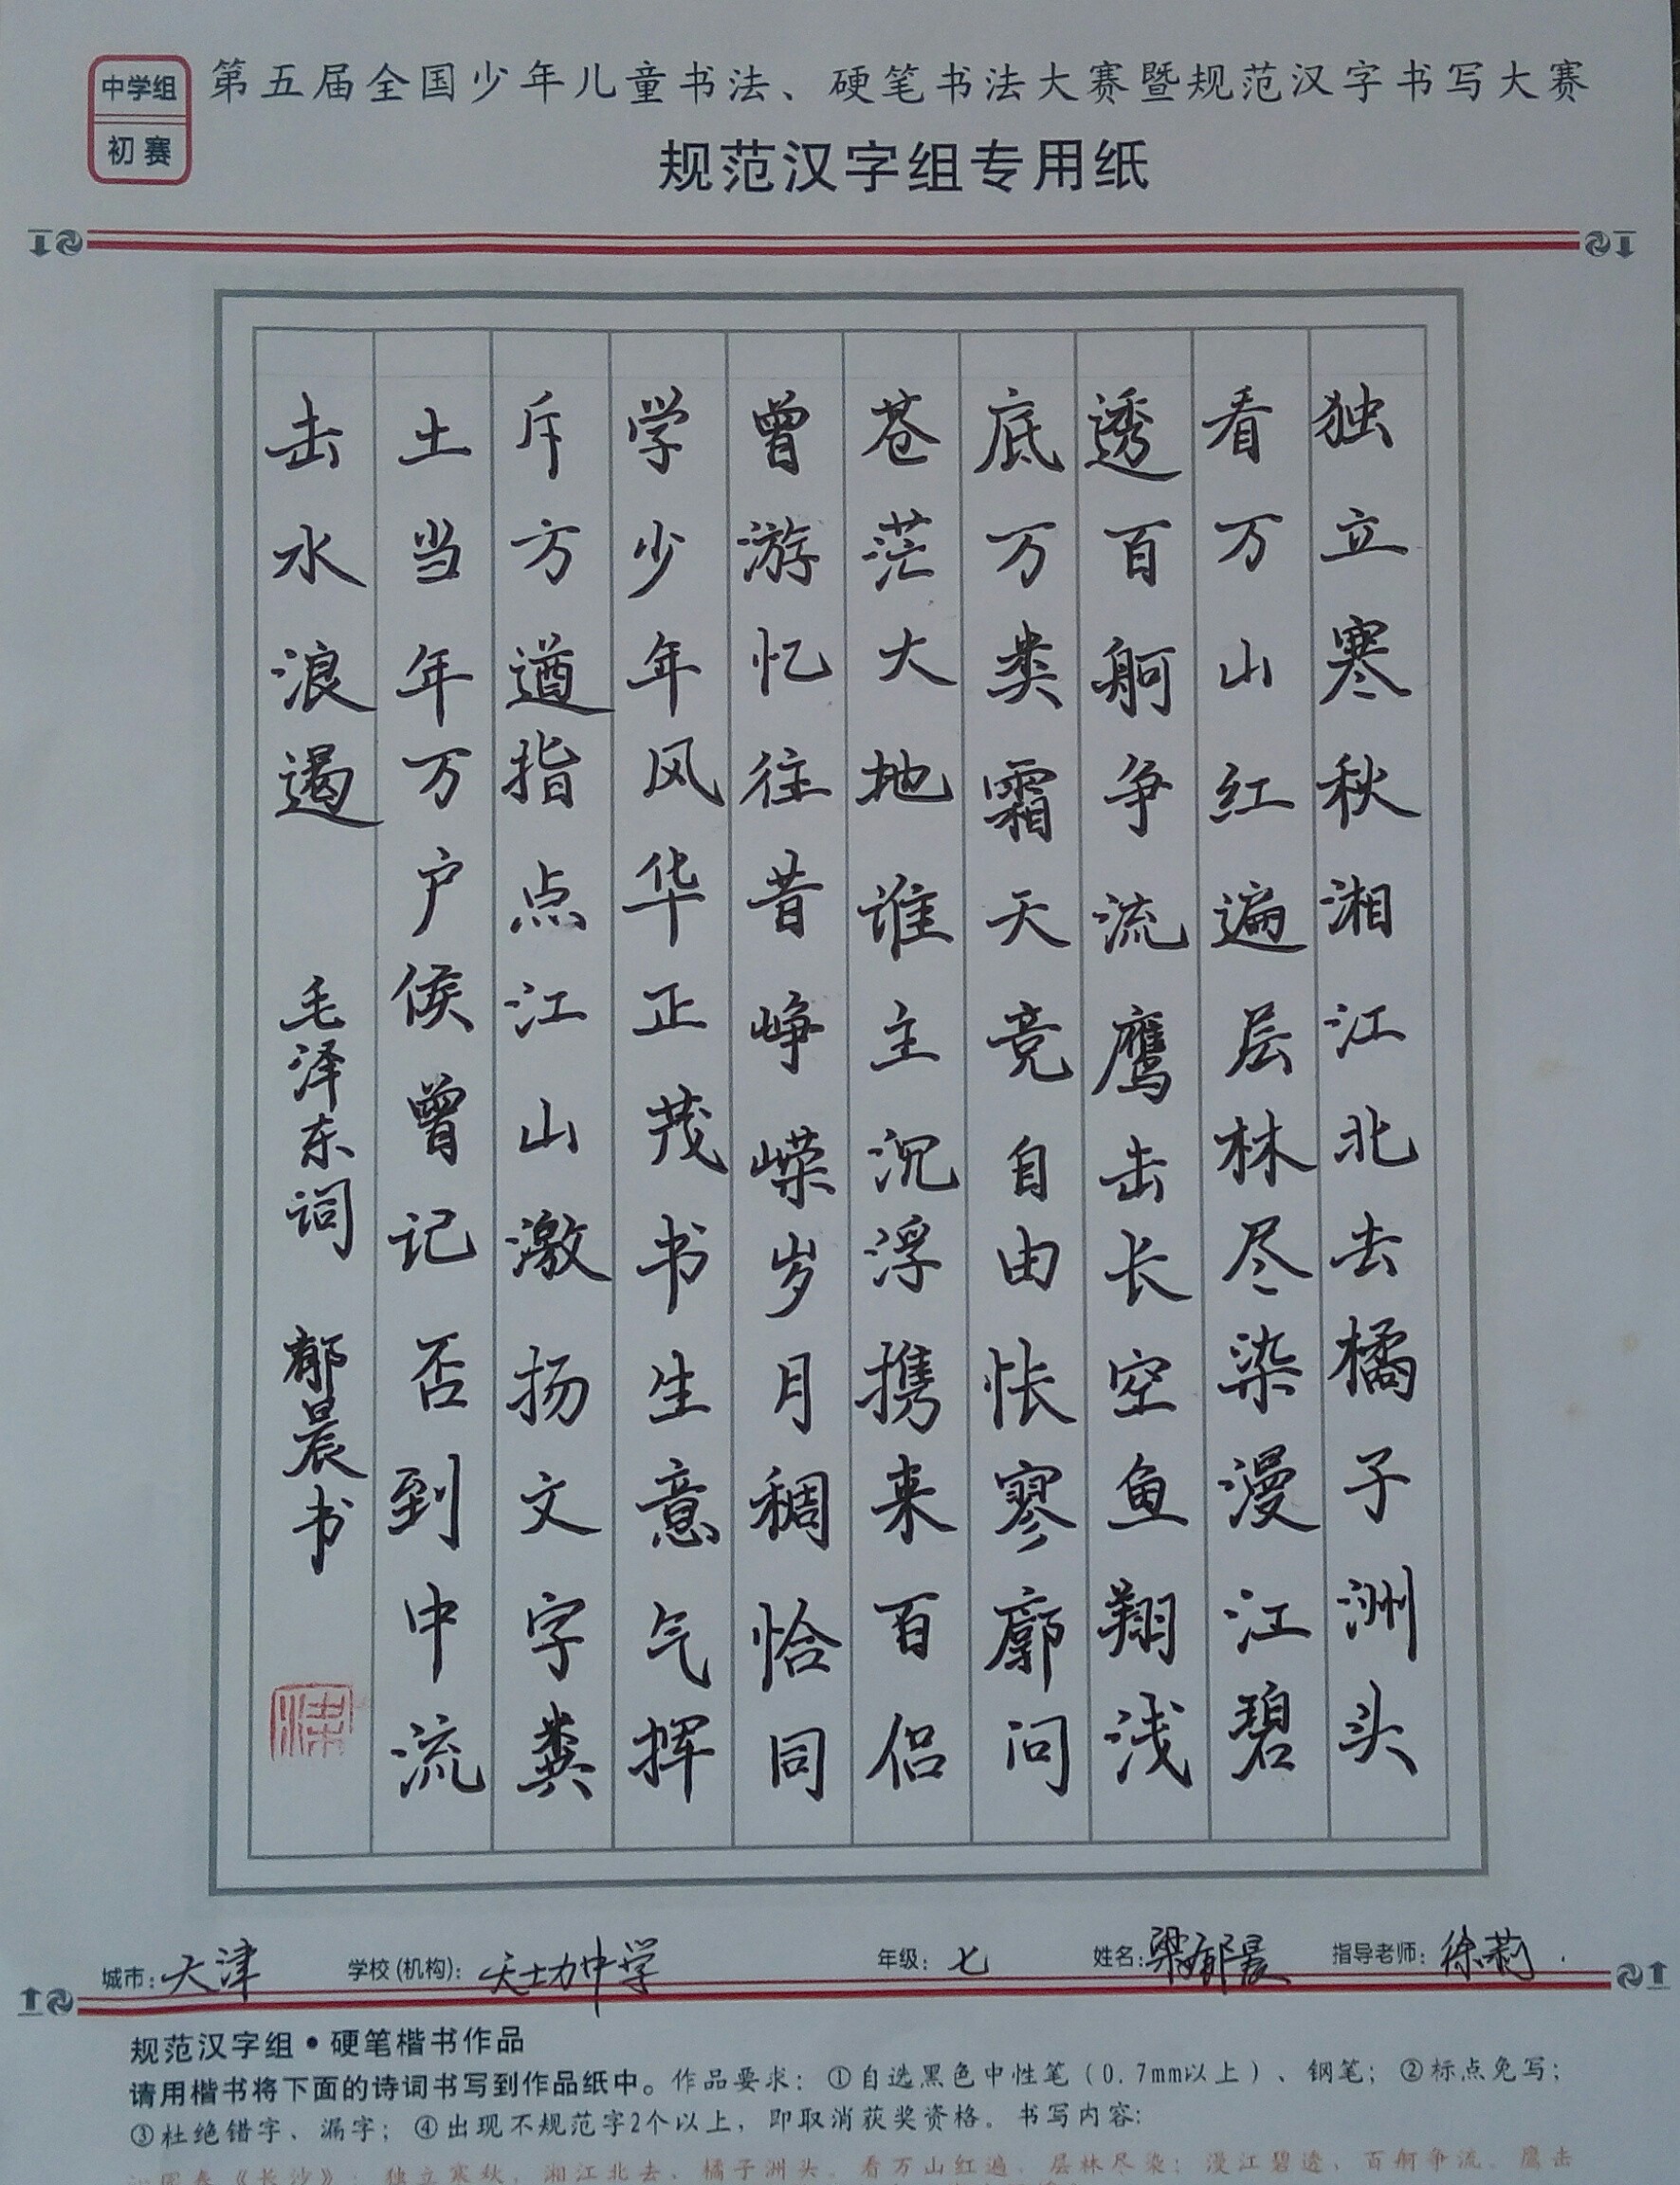 中学组
初赛
第五届全国少年儿童书法、硬笔书法大赛暨规范汉字书写大赛
规范汉字组专用纸
独立寒秋湘江北去橘子洲头
看万山红遍层林尽染漫江碧
透百舸争流鹰击长空鱼翔浅
底万类霜天竞自由怅寥廓问
苍茫大地谁主沉浮携来百侣
曾游忆往昔峥嵘岁月稠恰同
学少年风华正茂书生意气挥
斥方遒指点江山激扬文字粪
土当年万户侯曾记否到中流
击水浪遏 毛泽东词 郁晨书
城市:天津 学校(机构):天士力中学 年级:七 姓名:梁郁晨 指导老师:徐莉
规范汉字组•硬笔楷书作品
请用楷书将下面的诗词书写到作品纸中。作品要求:①自选黑色中性笔(0.7mm以上)、钢笔;②标点免写;
③杜绝错字、漏字;④出现不规范字2个以上,即取消获奖资格。书写内容:
沁园春《长沙》:独立寒秋,湘江北去,橘子洲头。看万山红遍,层林尽染;漫江碧透,百舸争流。鹰击